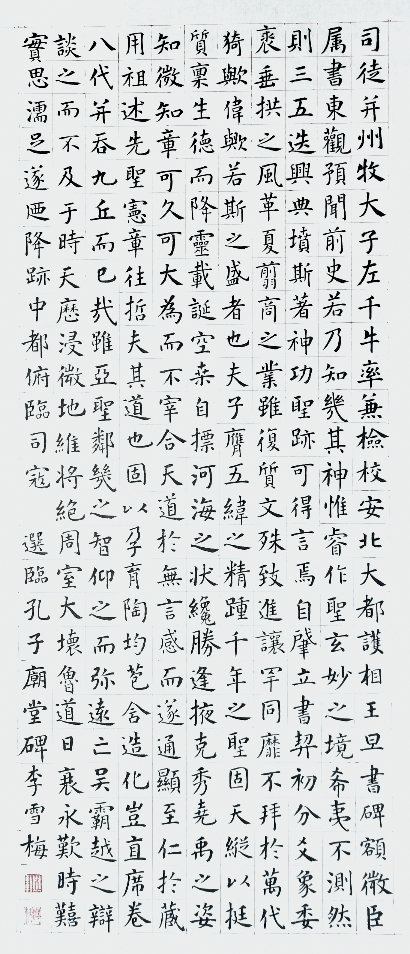 司徒并州牧大子左千牛率兼檢校安北大都護相王旦書碑額微臣
属書東觀預聞前史若乃知幾其神惟睿作聖玄妙之境希夷不測然
則三五迭興典墳斯著神功聖跡可得言焉自肇立書契初分爻象委
裘垂拱之風革夏翦商之業雖復質文殊致進讓罕同靡不拜於萬代
猗歟偉歟若斯之盛者也夫子膺五緯之精踵千年之聖固天縱以挺
質稟生德而降靈載誕空桑自摽河海之狀纔勝逢掖克秀堯禹之姿
知微知章可久可大為而不宰合天道於無言感而遂通顯至仁於藏
用祖述先聖憲章往哲夫其道也固以孕育陶均苞含造化豈直席卷
八代并吞九丘而已哉雖亞聖鄰幾之智仰之而弥遠亡吴霸越之辯
談之而不及于時天歷浸微地維將絕周室大壞魯道日衰永歎時囏
實思濡足遂迺降跡中都俯臨司寇 選臨孔子廟堂碑李雪梅